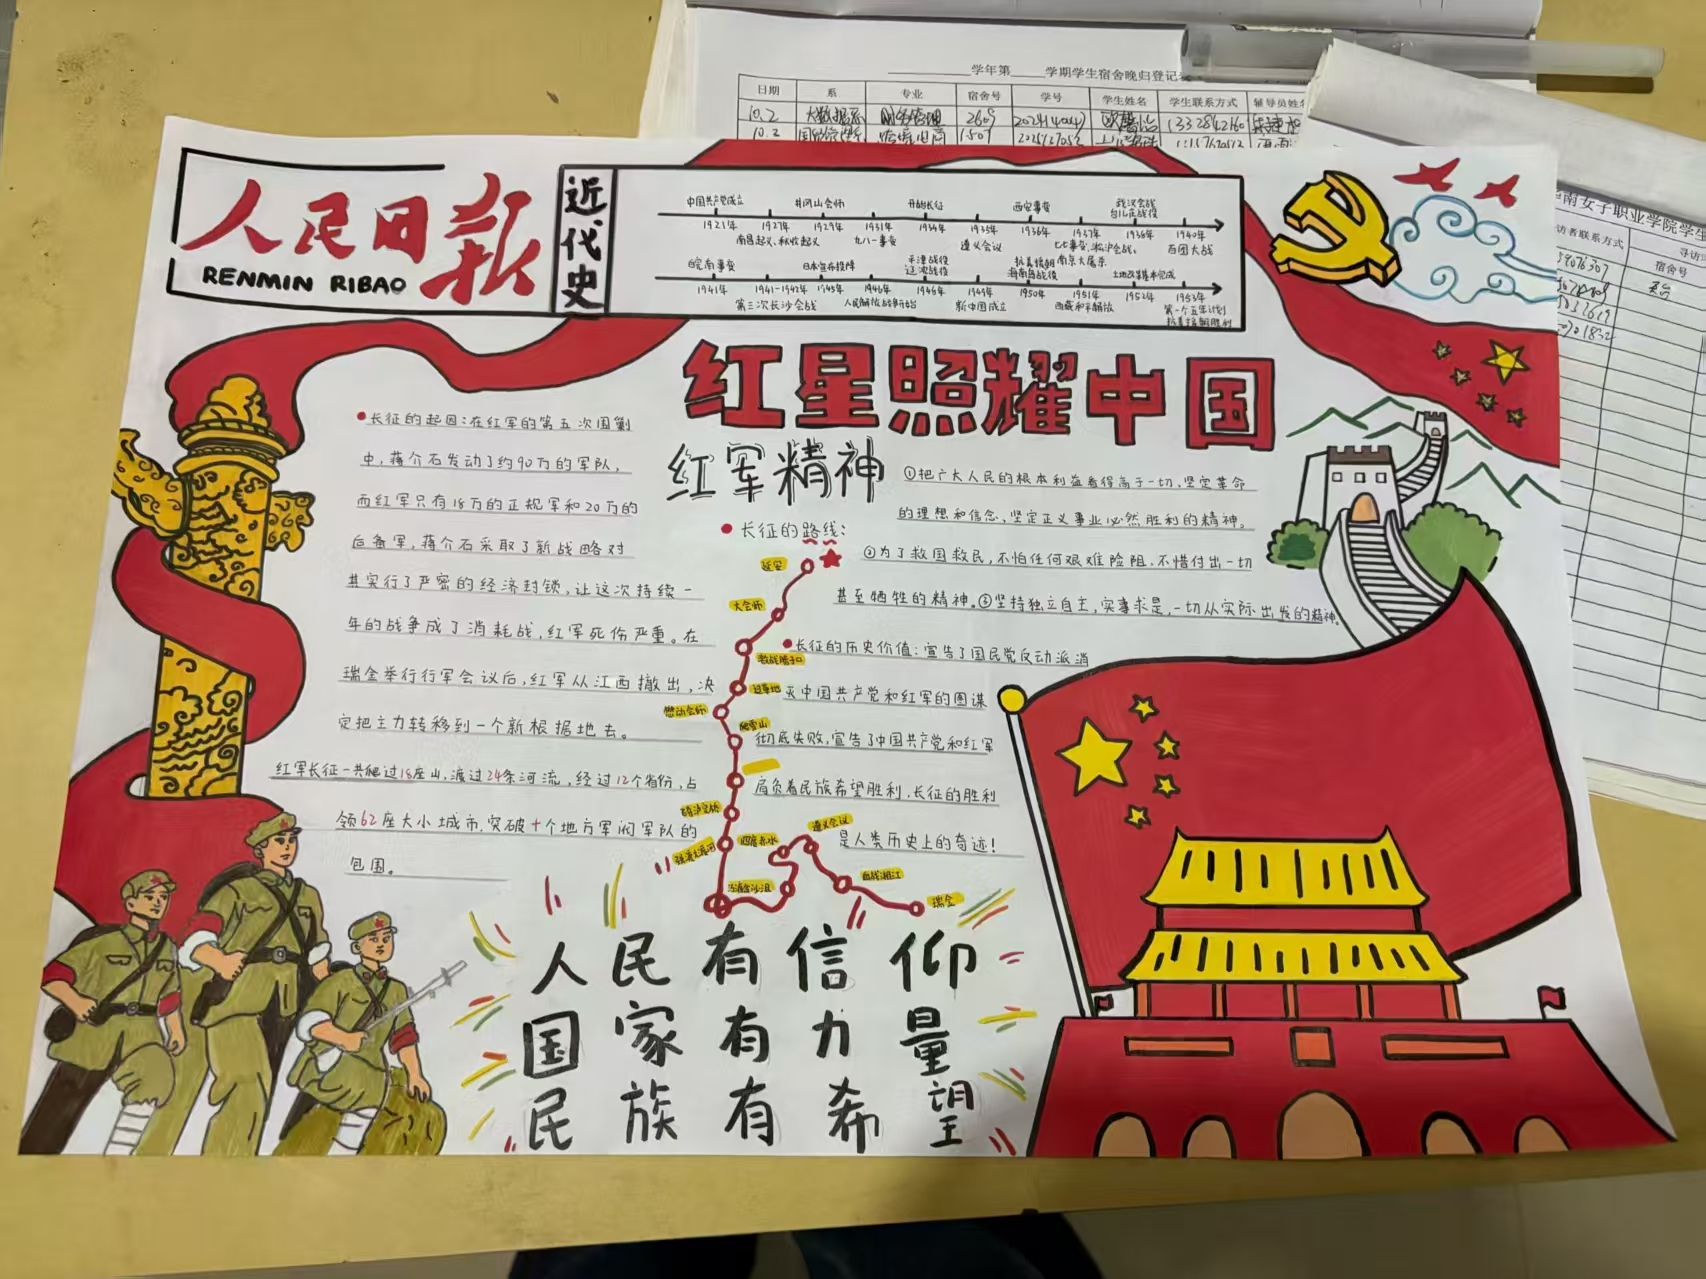 人民日报
RENMIN RIBAO
近代史
中国共产党成立 井冈山会师 开始长征 西安事变 武汉会战
台儿庄战役
1921年 1927年 1929年 1931年 1934年 1935年 1936年 1937年 1938年 1940年
南昌起义、秋收起义 九一八事变 遵义会议 七七事变、淞沪会战、南京大屠杀 百团大战
皖南事变 日本宣布投降 平津战役 抗美援朝 土地改革基本完成
辽沈战役 海南岛战役
1941年 1941-1942年 1945年 1946年 1948年 1949年 1950年 1951年 1952年 1953年
第三次长沙会战 人民解放战争开始 新中国成立 西藏和平解放 第一个五年计划
抗美援朝胜利
红星照耀中国
红军精神
①把广大人民的根本利益看得高于一切,坚定革命
的理想和信念,坚定正义事业必然胜利的精神。
②为了救国救民,不怕任何艰难险阻,不惜付出一切
甚至牺牲的精神。③坚持独立自主,实事求是,一切从实际出发的精神。
●长征的起因:在红军的第五次围剿
中,蒋介石发动了约90万的军队,
而红军只有18万的正规军和20万的
后备军,蒋介石采取了新战略对
其实行了严密的经济封锁,让这次持续一
年的战争成了消耗战,红军死伤严重。在
瑞金举行行军会议后,红军从江西撤出,决
定把主力转移到一个新根据地去。
红军长征一共爬过18座山,渡过24条河流,经过12个省份,占
领62座大小城市,突破十个地方军阀军队的
包围。
●长征的路线:
延安
大会师
激战腊子口
过草地
懋功会师
爬雪山
四渡赤水
遵义会议
血战湘江
瑞金
●长征的历史价值:宣告了国民党反动派消
灭中国共产党和红军的图谋
彻底失败,宣告了中国共产党和红军
肩负着民族希望胜利,长征的胜利
是人类历史上的奇迹!
人民有信仰
国家有力量
民族有希望
学年第 学期学生宿舍晚归登记表
日期 系 专业 宿舍号 学号 学生姓名 学生联系方式 辅导员姓名
10.2 大数据系 财务管理 2609
10.2 1507
南女子职业学院学生
访者联系方式 宿舍号